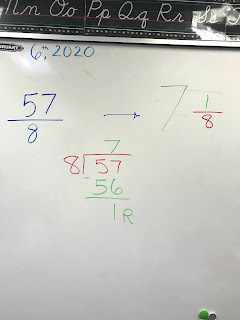 Nn Oo Pp Qq Rr Ss
6th, 2020
57/8 → 7 1/8
7
8 57
56
1R